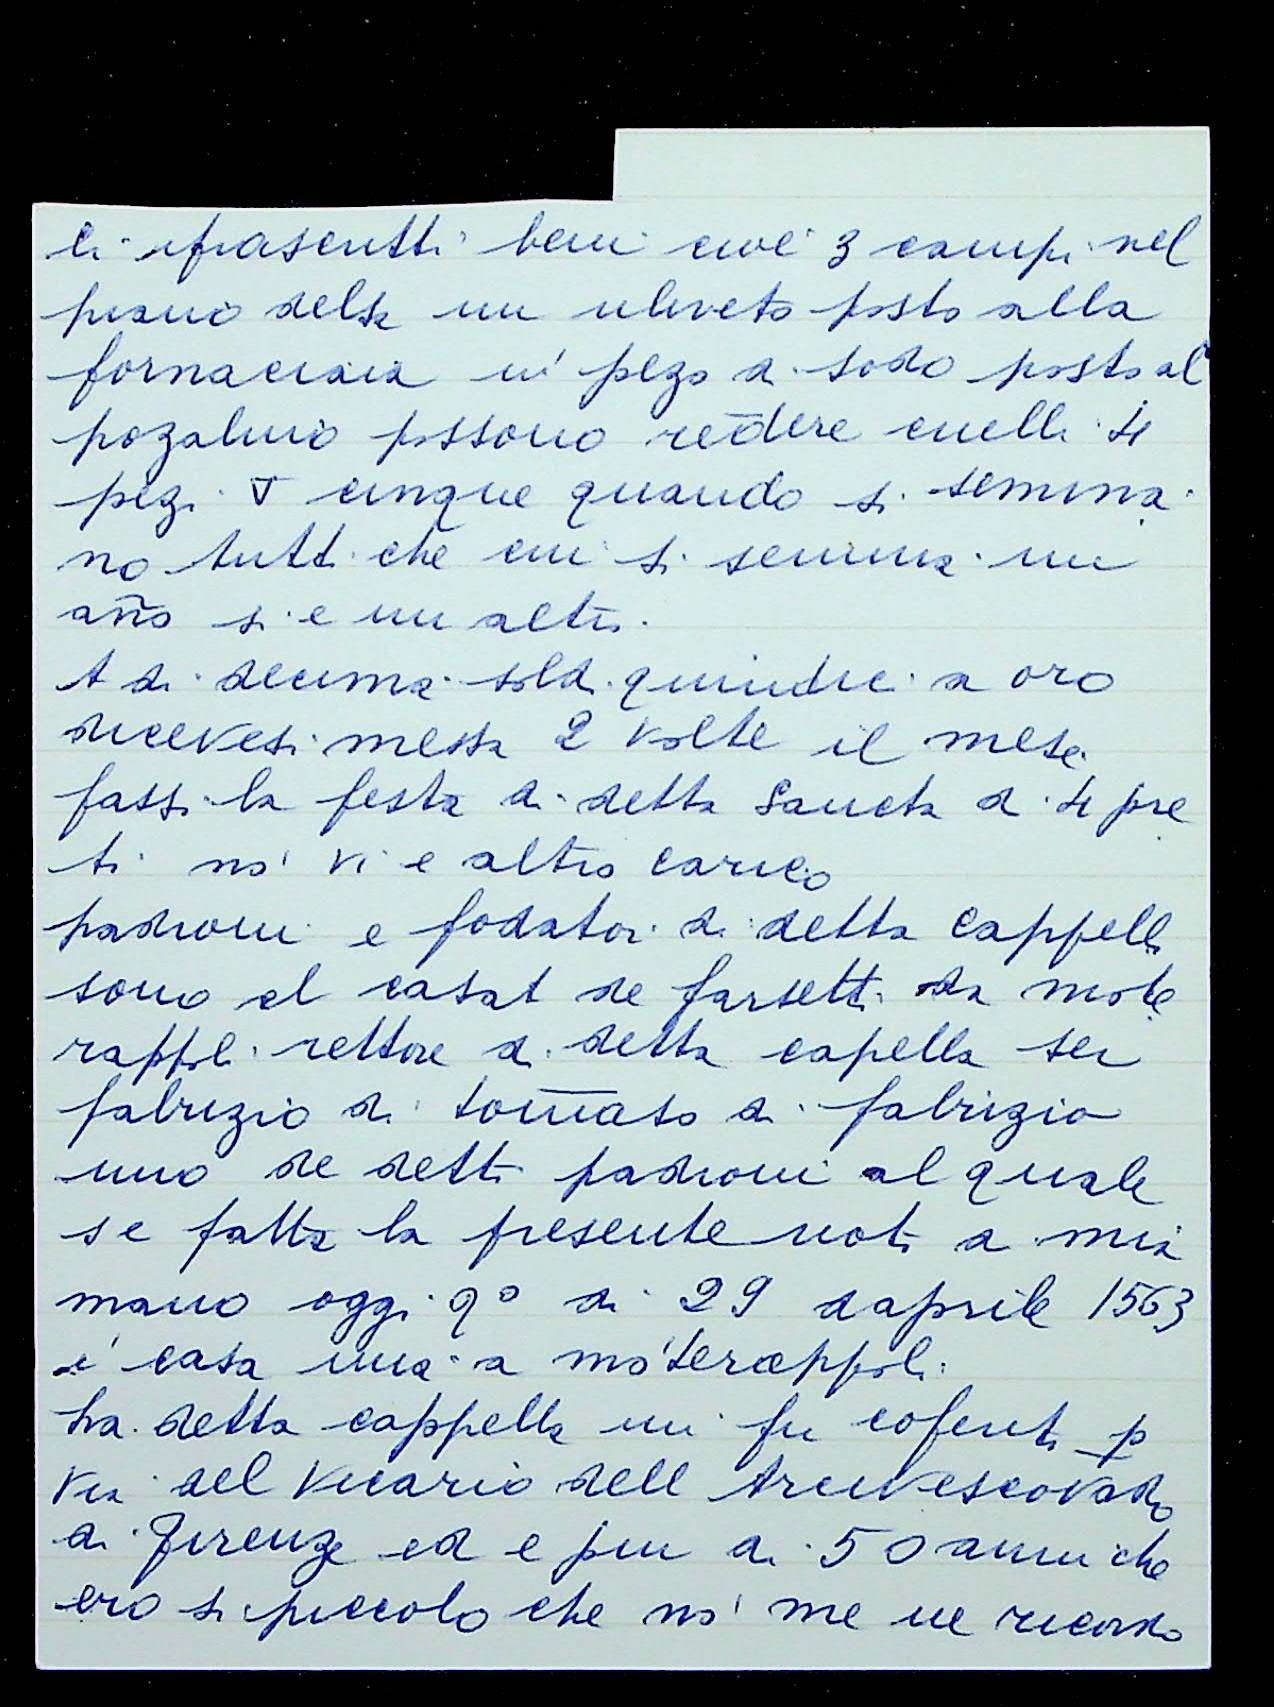 li ifrascritti beni cioè 3 campi nel
piano delsa un uliveto posto alla
fornaciaia u' pezo di sodo posto al
pozalino possono rēdere cuelli 4
pezi cinque quando si semina
no tutti che cui si semina un
año si e un altro.
A di decima soldi quindici a oro
dicevesi messa 2 volte il mese
fassi la festa di detta Sancta di 4 pre
ti no' vi e altro carico
padroni e fodatori di detta cappella
sono el casat de farsetti da mote
rappoli rettore di detta capella ser
fabrizio di tom̄aso di fabrizio
uno de detti padroni al quale
se fatta la presente nota a mia
mano oggi qº di 29 daprile 1563
i' casa mia a mo'terappoli.
La detta cappella mi fu coferita p
via del Vicario dell Arcivescovado
di firenze ed e piu di 50 anni che
ero si piccolo che no' me ne ricordo